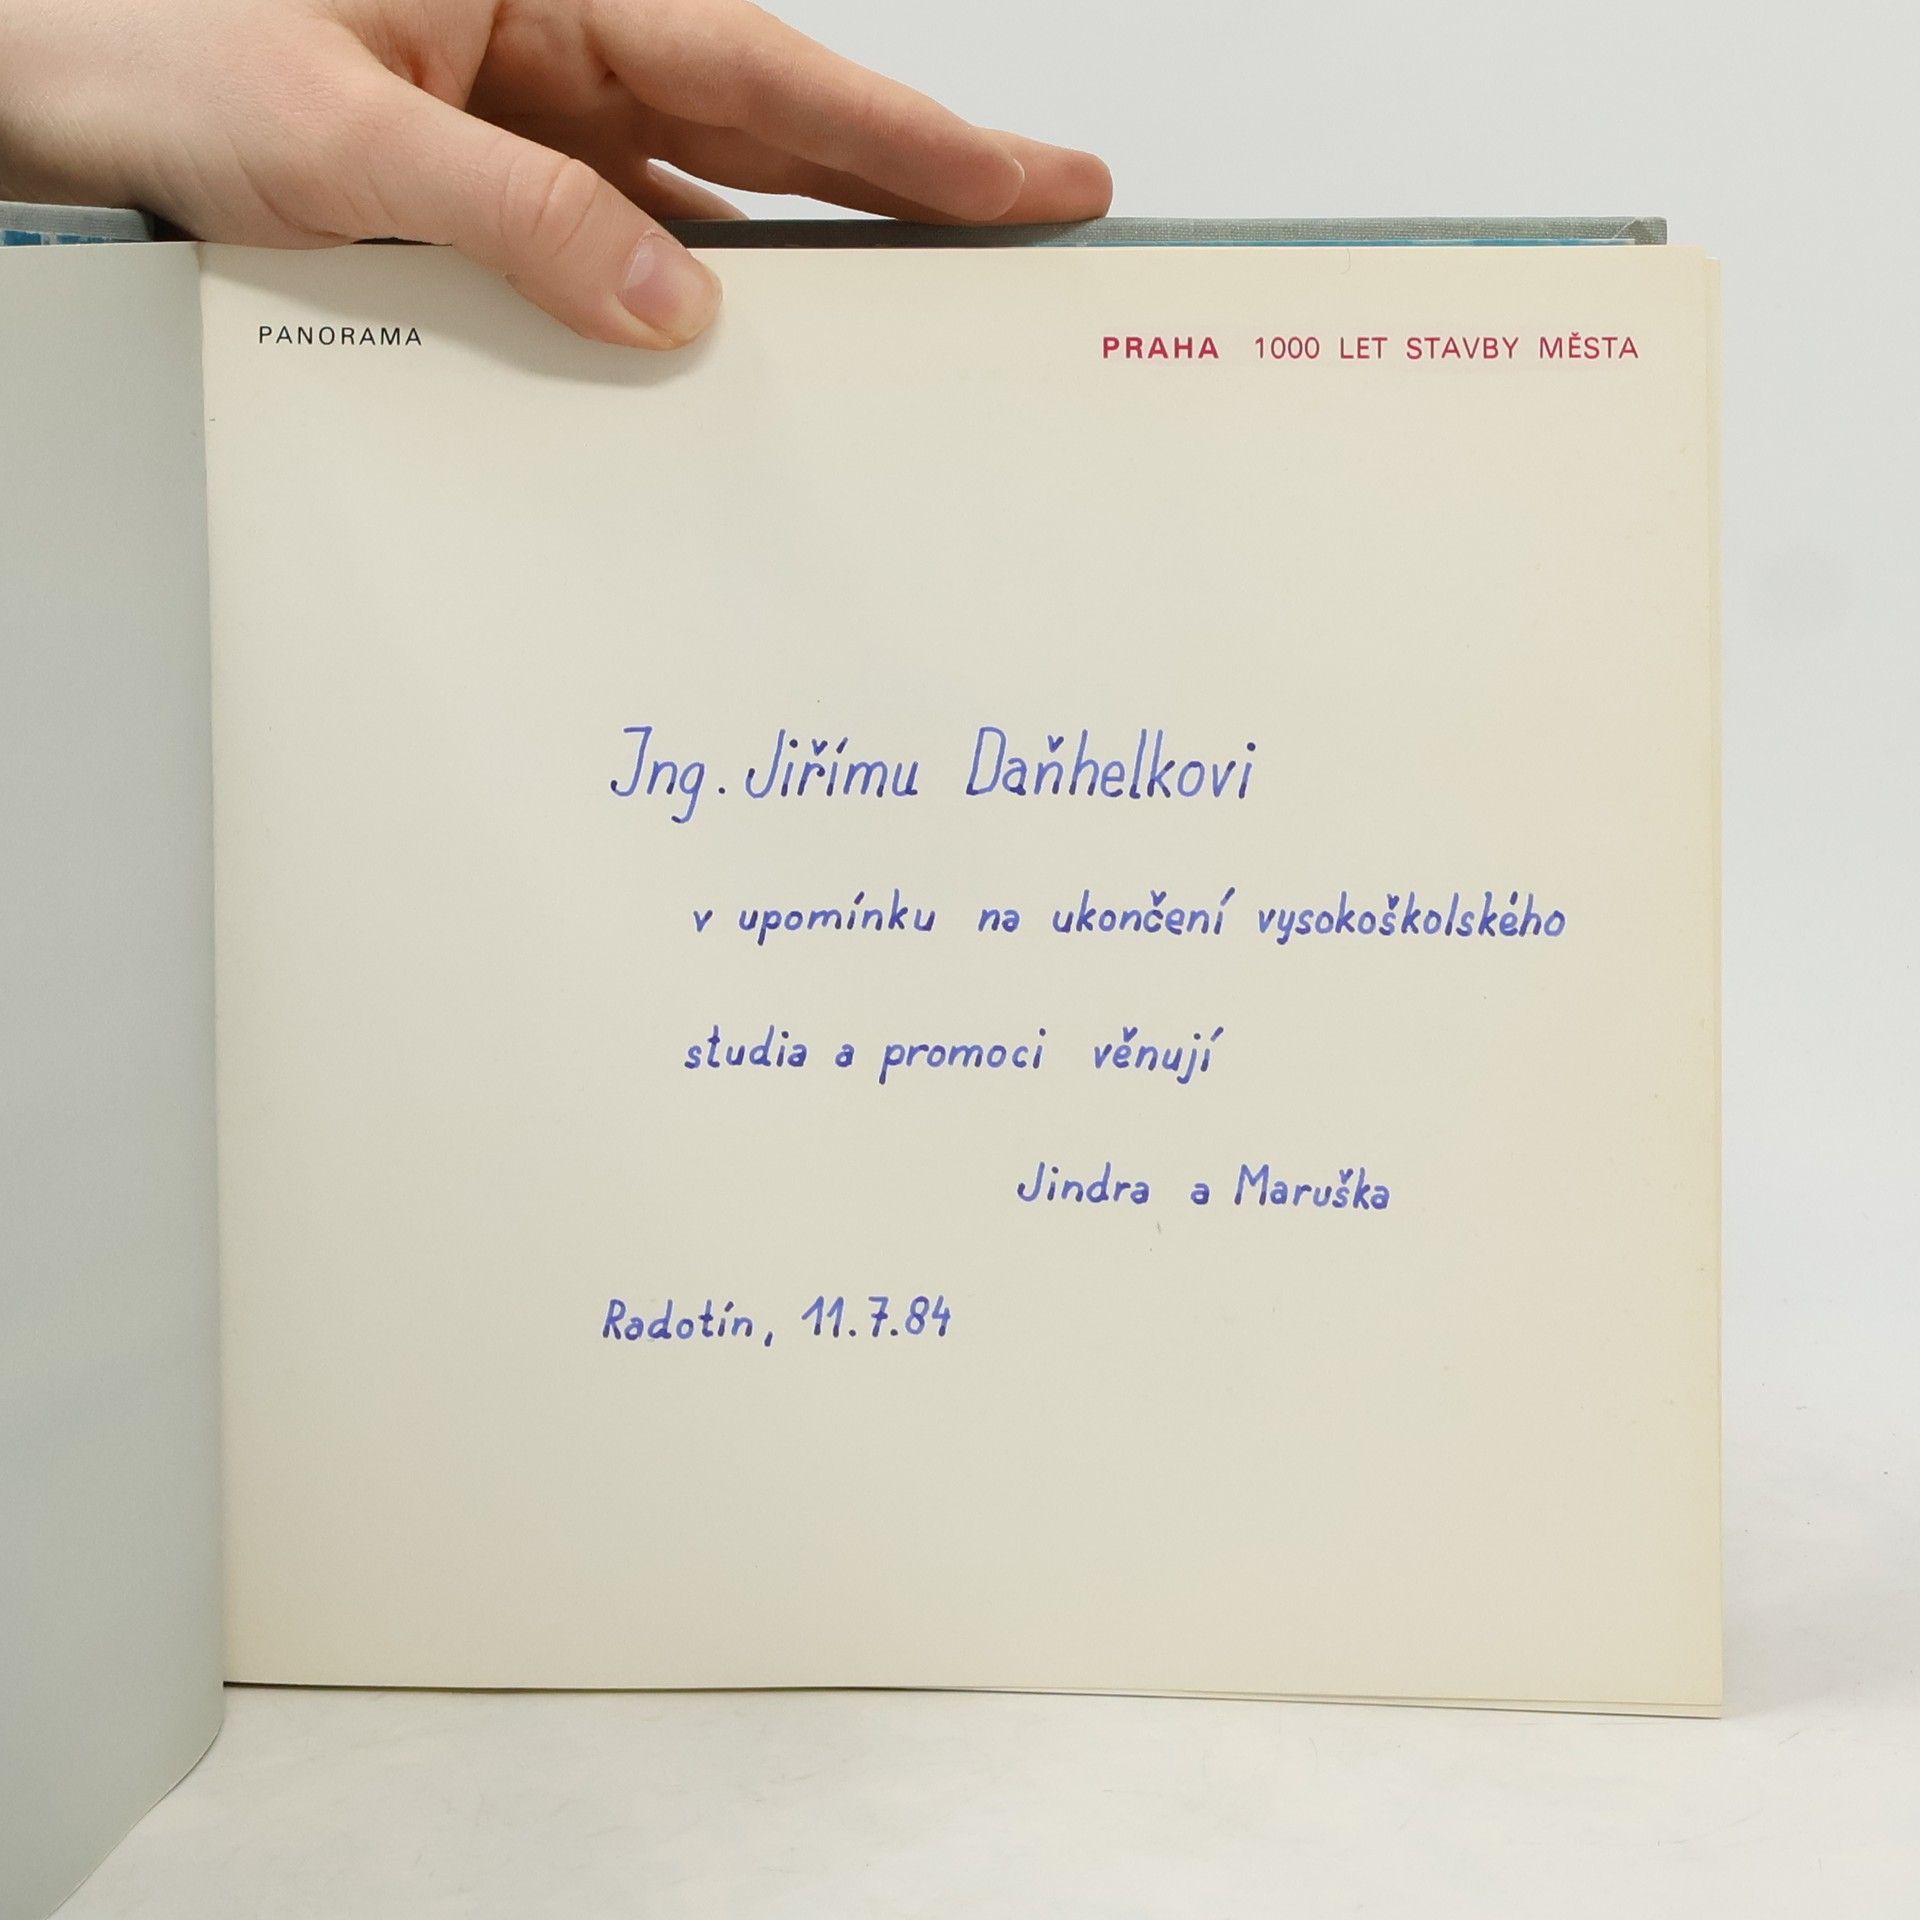 PANORAMA
PRAHA 1000 LET STAVBY MĚSTA
Ing. Jiřímu Daňhelkovi
v upomínku na ukončení vysokoškolského
studia a promoci věnují
Jindra a Maruška
Radotín, 11.7.84